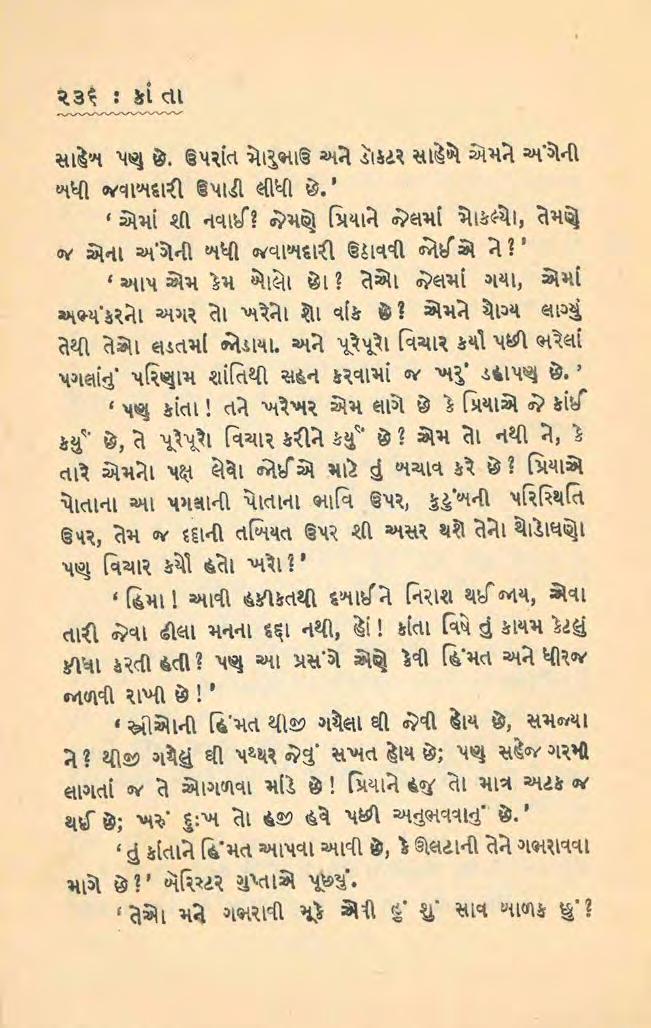 ૨૩૬ : કાંતા
સાહેબ પણ છે. ઉપરાંત મોરુભાઉ અને ડૉક્ટર સાહેબે એમને અંગેની
બધી જવાબદારી ઉપાડી લીધી છે.'
‘ એમાં શી નવાઈ? જેમણે પ્રિયાને જેલમાં મોકલ્યો, તેમણે
જ એના અંગેની બધી જવાબદારી ઉઠાવવી જોઈએ ને?'
‘ આપ એમ કેમ બોલો છો? તેઓ જેલમાં ગયા, એમાં
અભ્યંકરનો અગર તો ખરેનો શો વાંક છે? એમને યોગ્ય લાગ્યું
તેથી તેઓ લડતમાં જોડાયા. અને પૂરેપૂરો વિચાર કર્યા પછી ભરેલાં
પગલાંનું પરિણામ શાંતિથી સહન કરવામાં જ ખરું ડહાપણ છે.'
‘ પણ કાંતા! તને ખરેખર એમ લાગે છે કે પ્રિયાએ જે કાંઈ
કર્યું છે, તે પૂરેપૂરો વિચાર કરીને કર્યું છે? એમ તો નથી ને, કે
તારે એમનો પક્ષ લેવો જોઈએ માટે તું બચાવ કરે છે? પ્રિયાએ
પોતાના આ પગલાની પોતાના ભાવિ ઉપર, કુટુંબની પરિસ્થિતિ
ઉપર, તેમ જ દદ્દાની તબિયત ઉપર શી અસર થશે તેનો થોડોઘણો
પણ વિચાર કર્યો હતો ખરો?'
‘ હિમા! આવી હકીકતથી દબાઈને નિરાશ થઈ જાય, એવા
તારી જેવા ઢીલા મનના દદ્દા નથી, હોં! કાંતા વિષે તું કાયમ કેટલું
કીધા કરતી હતી? પણ આ પ્રસંગે એણે કેવી હિંમત અને ધીરજ
જાળવી રાખી છે!'
‘ સ્ત્રીઓની હિંમત થીજી ગયેલા ઘી જેવી હોય છે, સમજ્યા
ને? થીજી ગયેલું ઘી પથ્થર જેવું સખત હોય છે; પણ સહેજ ગરમી
લાગતાં જ તે ઓગળવા માંડે છે! પ્રિયાને હજુ તો માત્ર અટક જ
થઈ છે; ખરું દુઃખ તો હજી હવે પછી અનુભવવાનું છે.'
‘ તું કાંતાને હિંમત આપવા આવી છે, કે ઊલટાની તેને ગભરાવવા
માગે છે?' બેરિસ્ટર ગુપ્તાએ પૂછ્યું.
‘ તેઓ મને ગભરાવી મૂકે એવી હું શું સાવ બાળક છું?